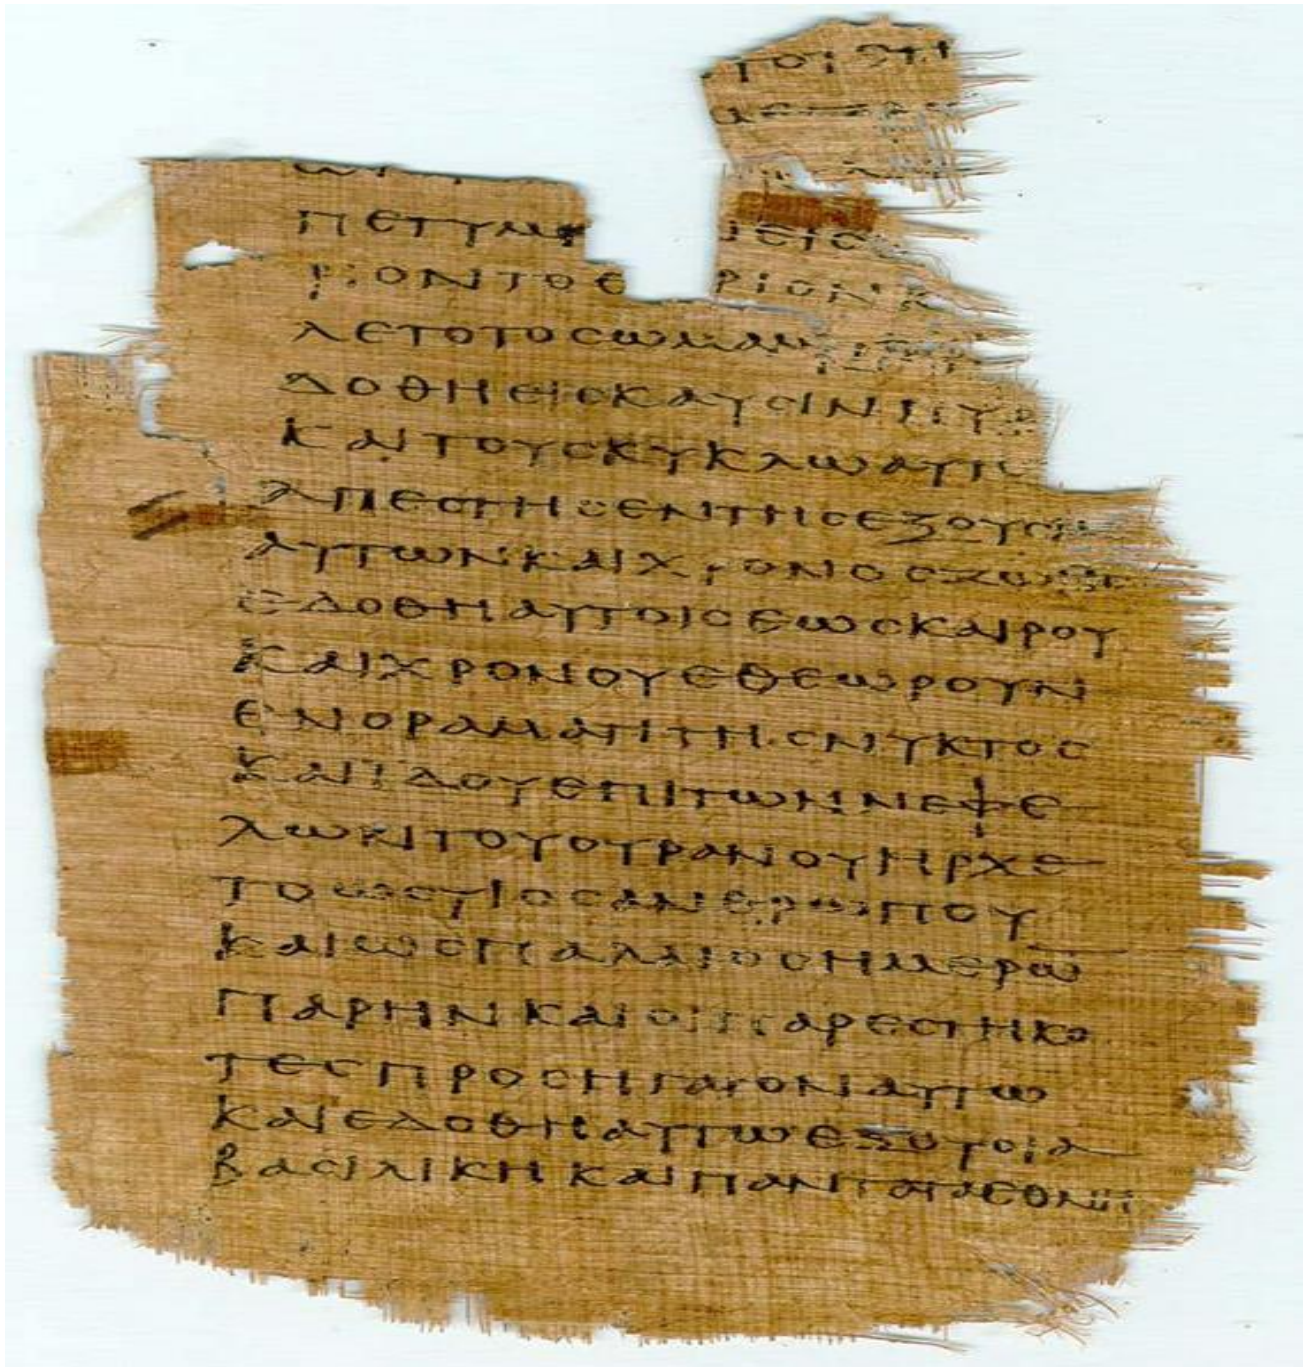 ΡΙΟΝΤΟΘ ΡΙΟΝ
ΛΕΤΟΤΟϹΩΜΑΑΥ
ΔΟΘΗΕΙϹΚΑΥϹΙΝΠΥΡ
ΚΑΙΤΟΥϹΚΥΚΛΩΑΥΤΟΥ
ΑΠΕϹΤΗϹΕΝΤΗϹΕΞΟΥϹΙΑϹ
ΑΥΤΩΝΚΑΙΧΡΟΝΟϹΖΩΗϹ
ΕΔΟΘΗΑΥΤΟΙϹΕΩϹΚΑΙΡΟΥ
ΚΑΙΧΡΟΝΟΥΕΘΕΩΡΟΥΝ
ΕΝΟΡΑΜΑΤΙΤΗϹΝΥΚΤΟϹ
ΚΑΙΙΔΟΥΕΠΙΤΩΝΝΕΦΕ
ΛΩΝΤΟΥΟΥΡΑΝΟΥΗΡΧΕ
ΤΟΩϹΥΙΟϹΑΝΘΡΩΠΟΥ
ΚΑΙΩϹΠΑΛΑΙΟϹΗΜΕΡΩ̅
ΠΑΡΗΝΚΑΙΟΙΠΑΡΕϹΤΗΚΟ
ΤΕϹΠΡΟϹΗΓΑΓΟΝΑΥΤΩ
ΚΑΙΕΔΟΘΗΑΥΤΩΕΞΟΥϹΙΑ
ΒΑϹΙΛΙΚΗΚΑΙΠΑΝΤΑΤΑΕΘΝΗ